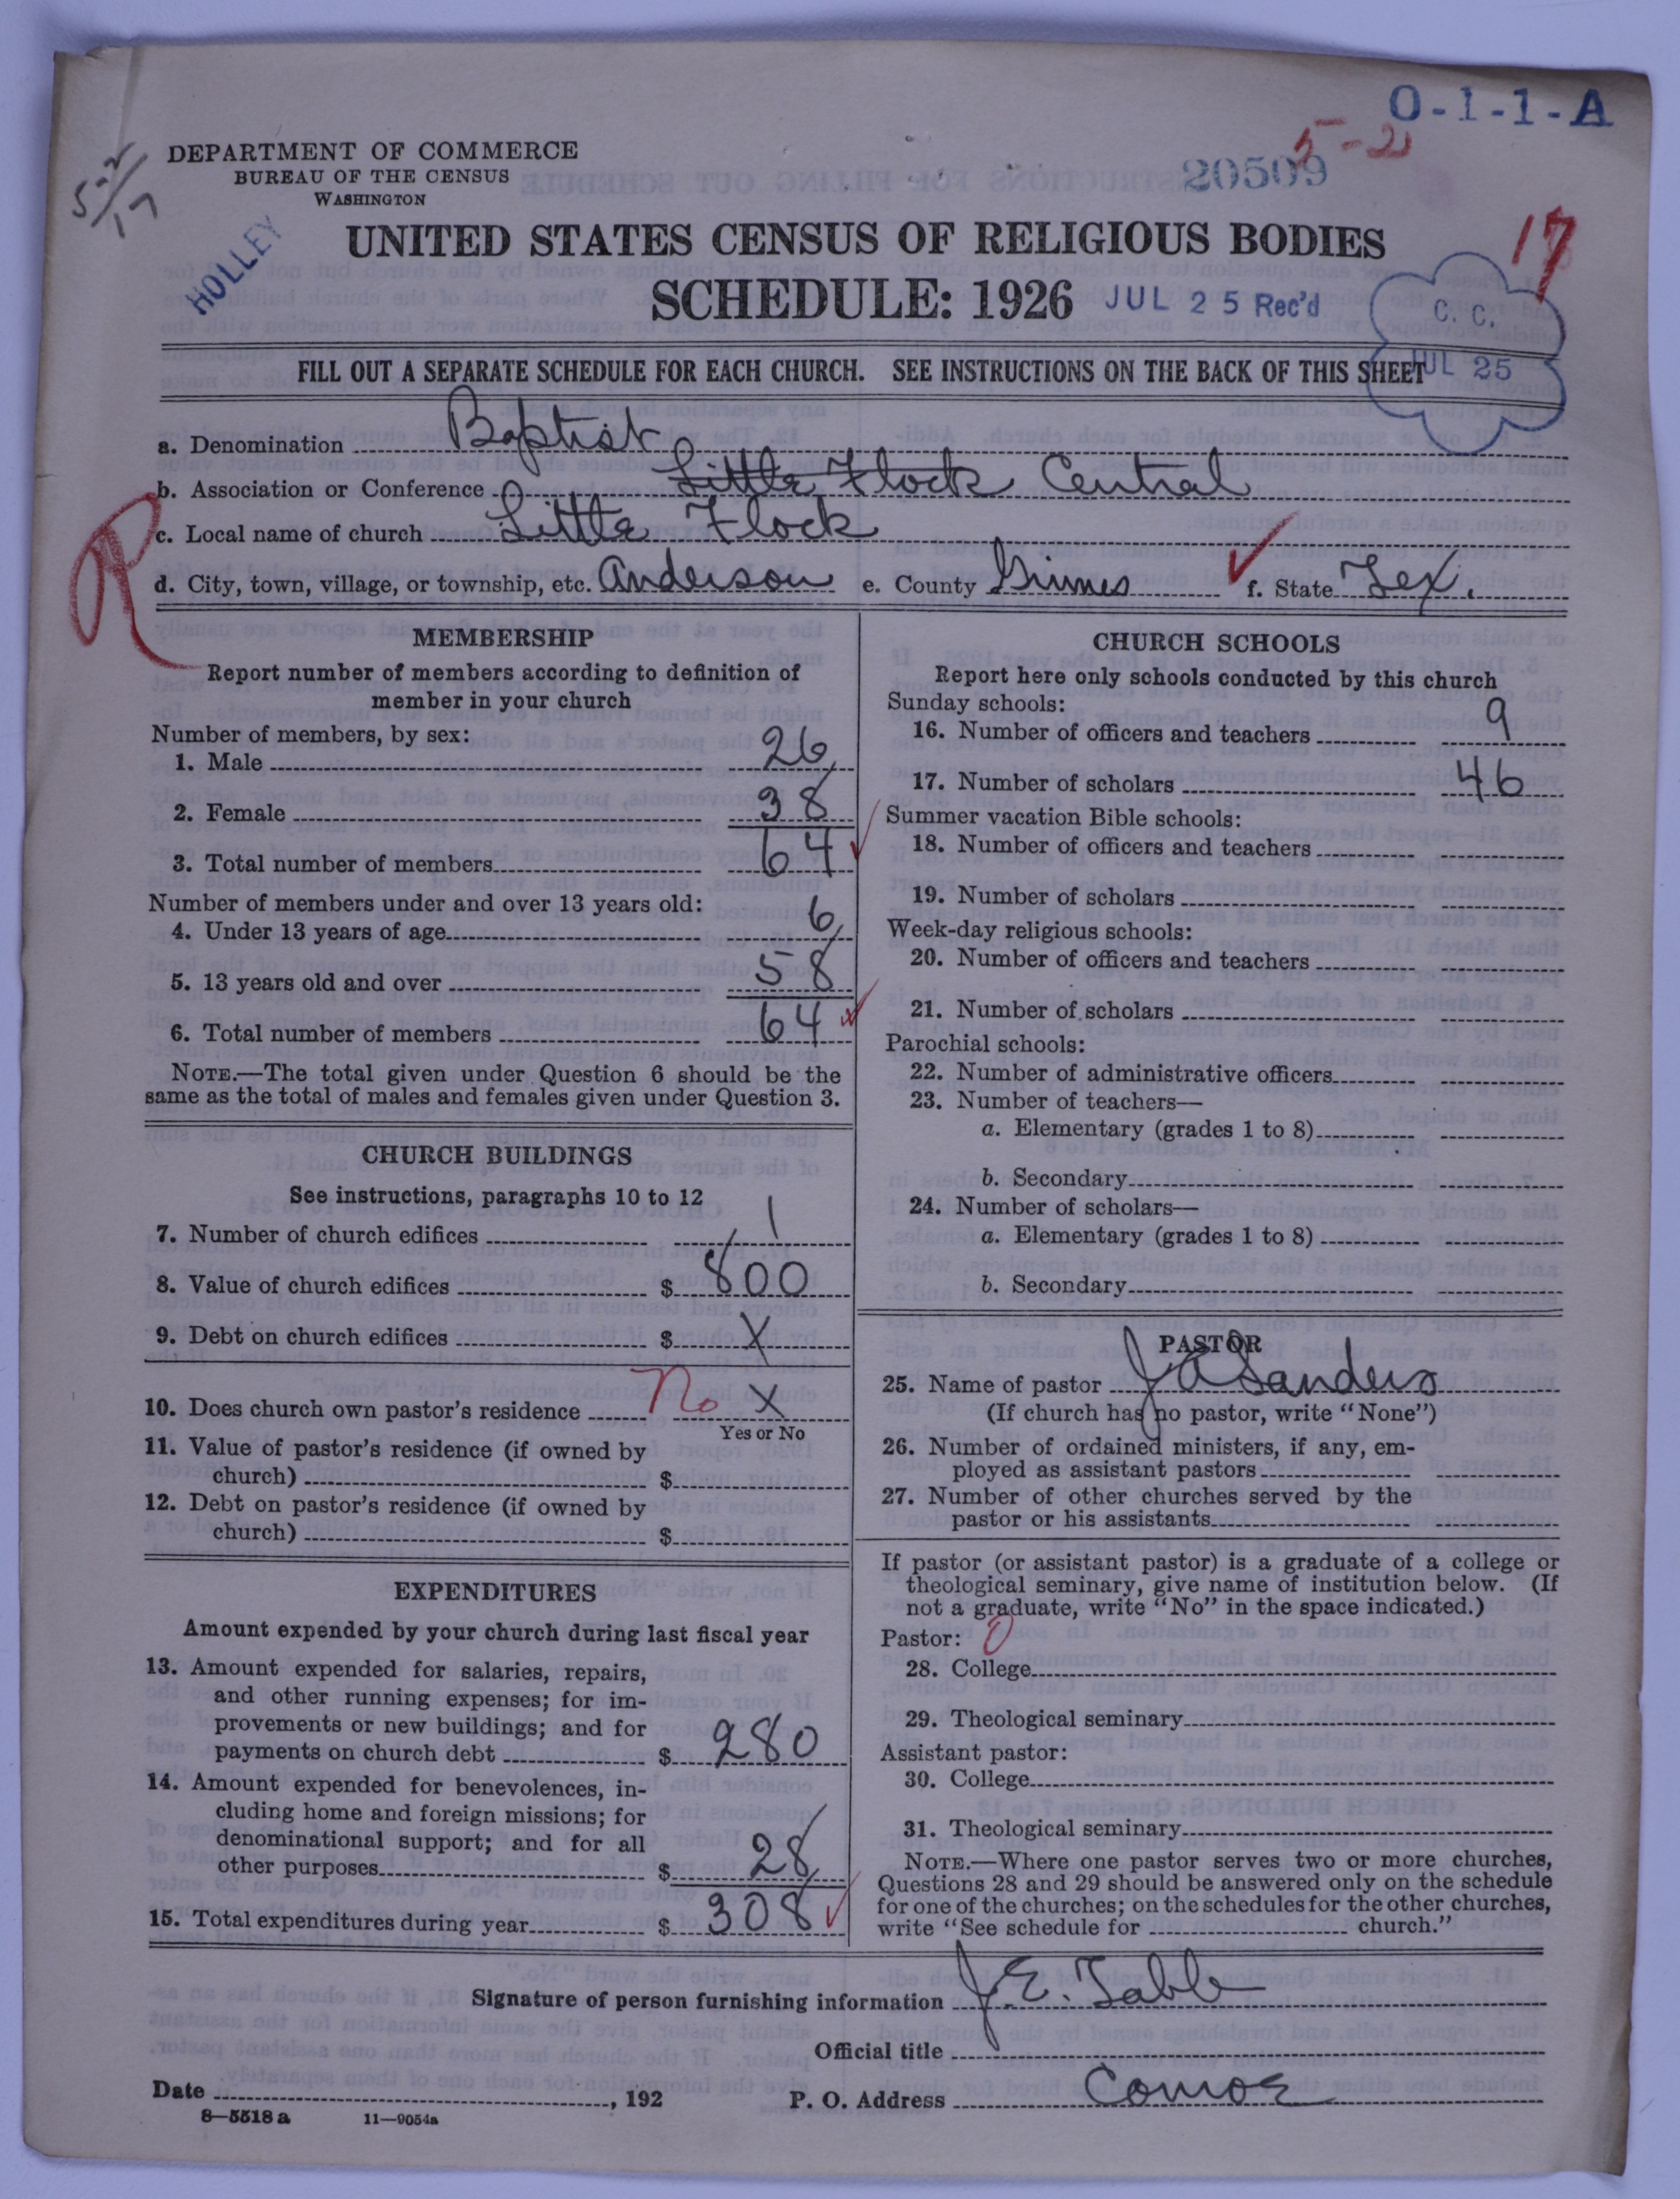 O-1-1-A
5-2
20509
5-2/17
DEPARTMENT OF COMMERCE
BUREAU OF THE CENSUS
WASHINGTON
HOLLEY
17
UNITED STATES CENSUS OF RELIGIOUS BODIES
SCHEDULE: 1926 JUL 25 Rec'd
C. C.
JUL 25
FILL OUT A SEPARATE SCHEDULE FOR EACH CHURCH. SEE INSTRUCTIONS ON THE BACK OF THIS SHEET
a. Denomination Baptist
b. Association or Conference Little Flock Central
c. Local name of church Little Flock
R
d. City, town, village, or township, etc. Anderson e. County Grimes f. State Tex.
MEMBERSHIP
Report number of members according to definition of
member in your church
Number of members, by sex:
1. Male 26
2. Female 38
3. Total number of members 64
Number of members under and over 13 years old:
4. Under 13 years of age 6
5. 13 years old and over 58
6. Total number of members 64
NOTE.—The total given under Question 6 should be the
same as the total of males and females given under Question 3.
CHURCH BUILDINGS
See instructions, paragraphs 10 to 12
7. Number of church edifices 1
8. Value of church edifices $ 800
9. Debt on church edifices $ X
10. Does church own pastor's residence No X
Yes or No
11. Value of pastor's residence (if owned by
church) $
12. Debt on pastor's residence (if owned by
church) $
EXPENDITURES
Amount expended by your church during last fiscal year
13. Amount expended for salaries, repairs,
and other running expenses; for im-
provements or new buildings; and for
payments on church debt $ 280
14. Amount expended for benevolences, in-
cluding home and foreign missions; for
denominational support; and for all
other purposes $ 28
15. Total expenditures during year $ 308
CHURCH SCHOOLS
Report here only schools conducted by this church
Sunday schools:
16. Number of officers and teachers 9
17. Number of scholars 46
Summer vacation Bible schools:
18. Number of officers and teachers
19. Number of scholars
Week-day religious schools:
20. Number of officers and teachers
21. Number of scholars
Parochial schools:
22. Number of administrative officers
23. Number of teachers—
a. Elementary (grades 1 to 8)
b. Secondary
24. Number of scholars—
a. Elementary (grades 1 to 8)
b. Secondary
PASTOR
25. Name of pastor J A Sanders
(If church has no pastor, write "None")
26. Number of ordained ministers, if any, em-
ployed as assistant pastors
27. Number of other churches served by the
pastor or his assistants
If pastor (or assistant pastor) is a graduate of a college or
theological seminary, give name of institution below. (If
not a graduate, write "No" in the space indicated.)
Pastor: 0
28. College
29. Theological seminary
Assistant pastor:
30. College
31. Theological seminary
NOTE.—Where one pastor serves two or more churches,
Questions 28 and 29 should be answered only on the schedule
for one of the churches; on the schedules for the other churches,
write "See schedule for church."
Signature of person furnishing information J. E. Tabb
Official title
Date , 192 P. O. Address Comoe
8—5518 a 11—9054a